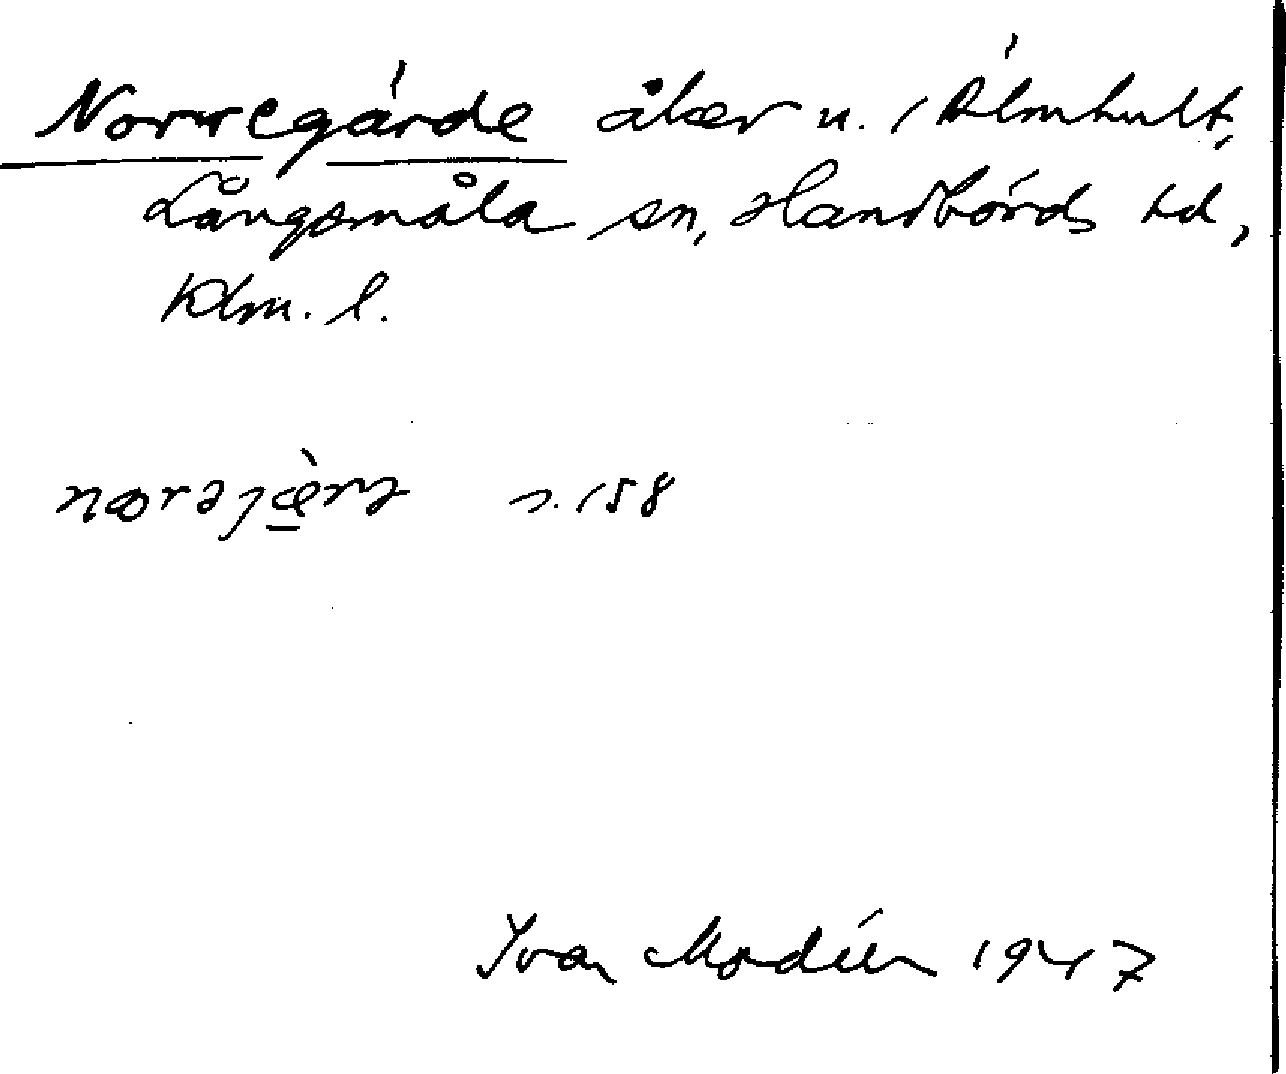 Norregärde åker u. 1 Älmhult,
Långemåla sn, Handbörds hd,
Klm. l.
nɷrəjæ̀rə s. 158
Ivar Modéer 1947